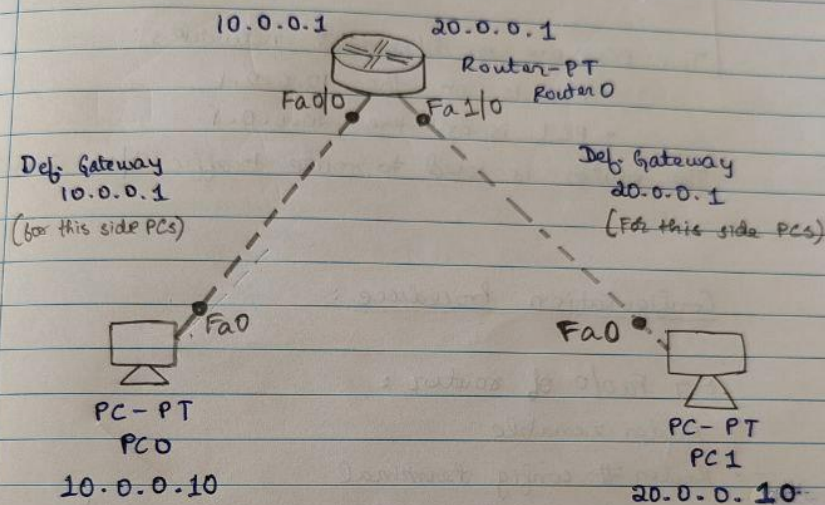 10.0.0.1
20.0.0.1
Router-PT
Router0
Fa0/0
Fa1/0
Def. Gateway
10.0.0.1
(for this side PCs)
Def. Gateway
20.0.0.1
(For this side PCs)
Fa0
Fa0
PC-PT
PC0
10.0.0.10
PC-PT
PC1
20.0.0.10